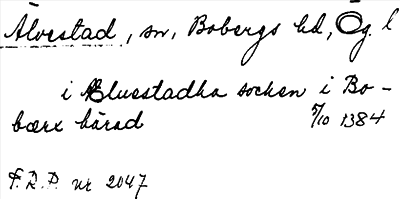 Älvestad, sn, Bobergs hd, Ög. l
i Aluestadha socken i Bo-
bærx härad 5/10 1384
F.R.P. nr 2047